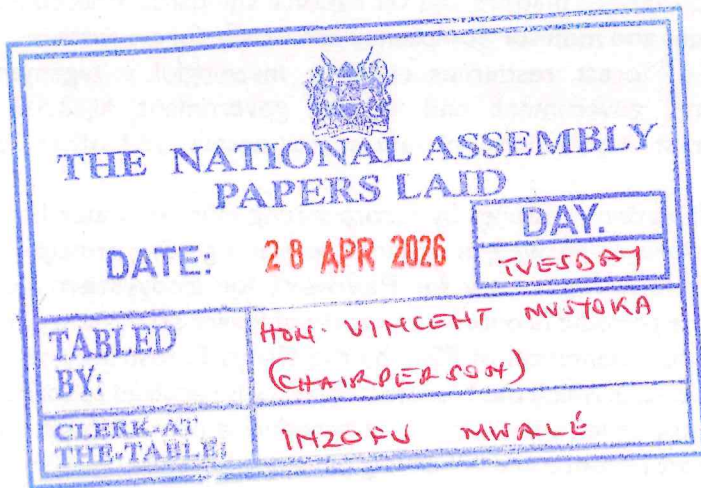 THE NATIONAL ASSEMBLY
PAPERS LAID
DATE: 28 APR 2026
DAY.
TUESDAY
TABLED BY:
HON. VINCENT MUSYOKA
(CHAIRPERSON)
CLERK-AT THE-TABLE:
INZOFU MWALE